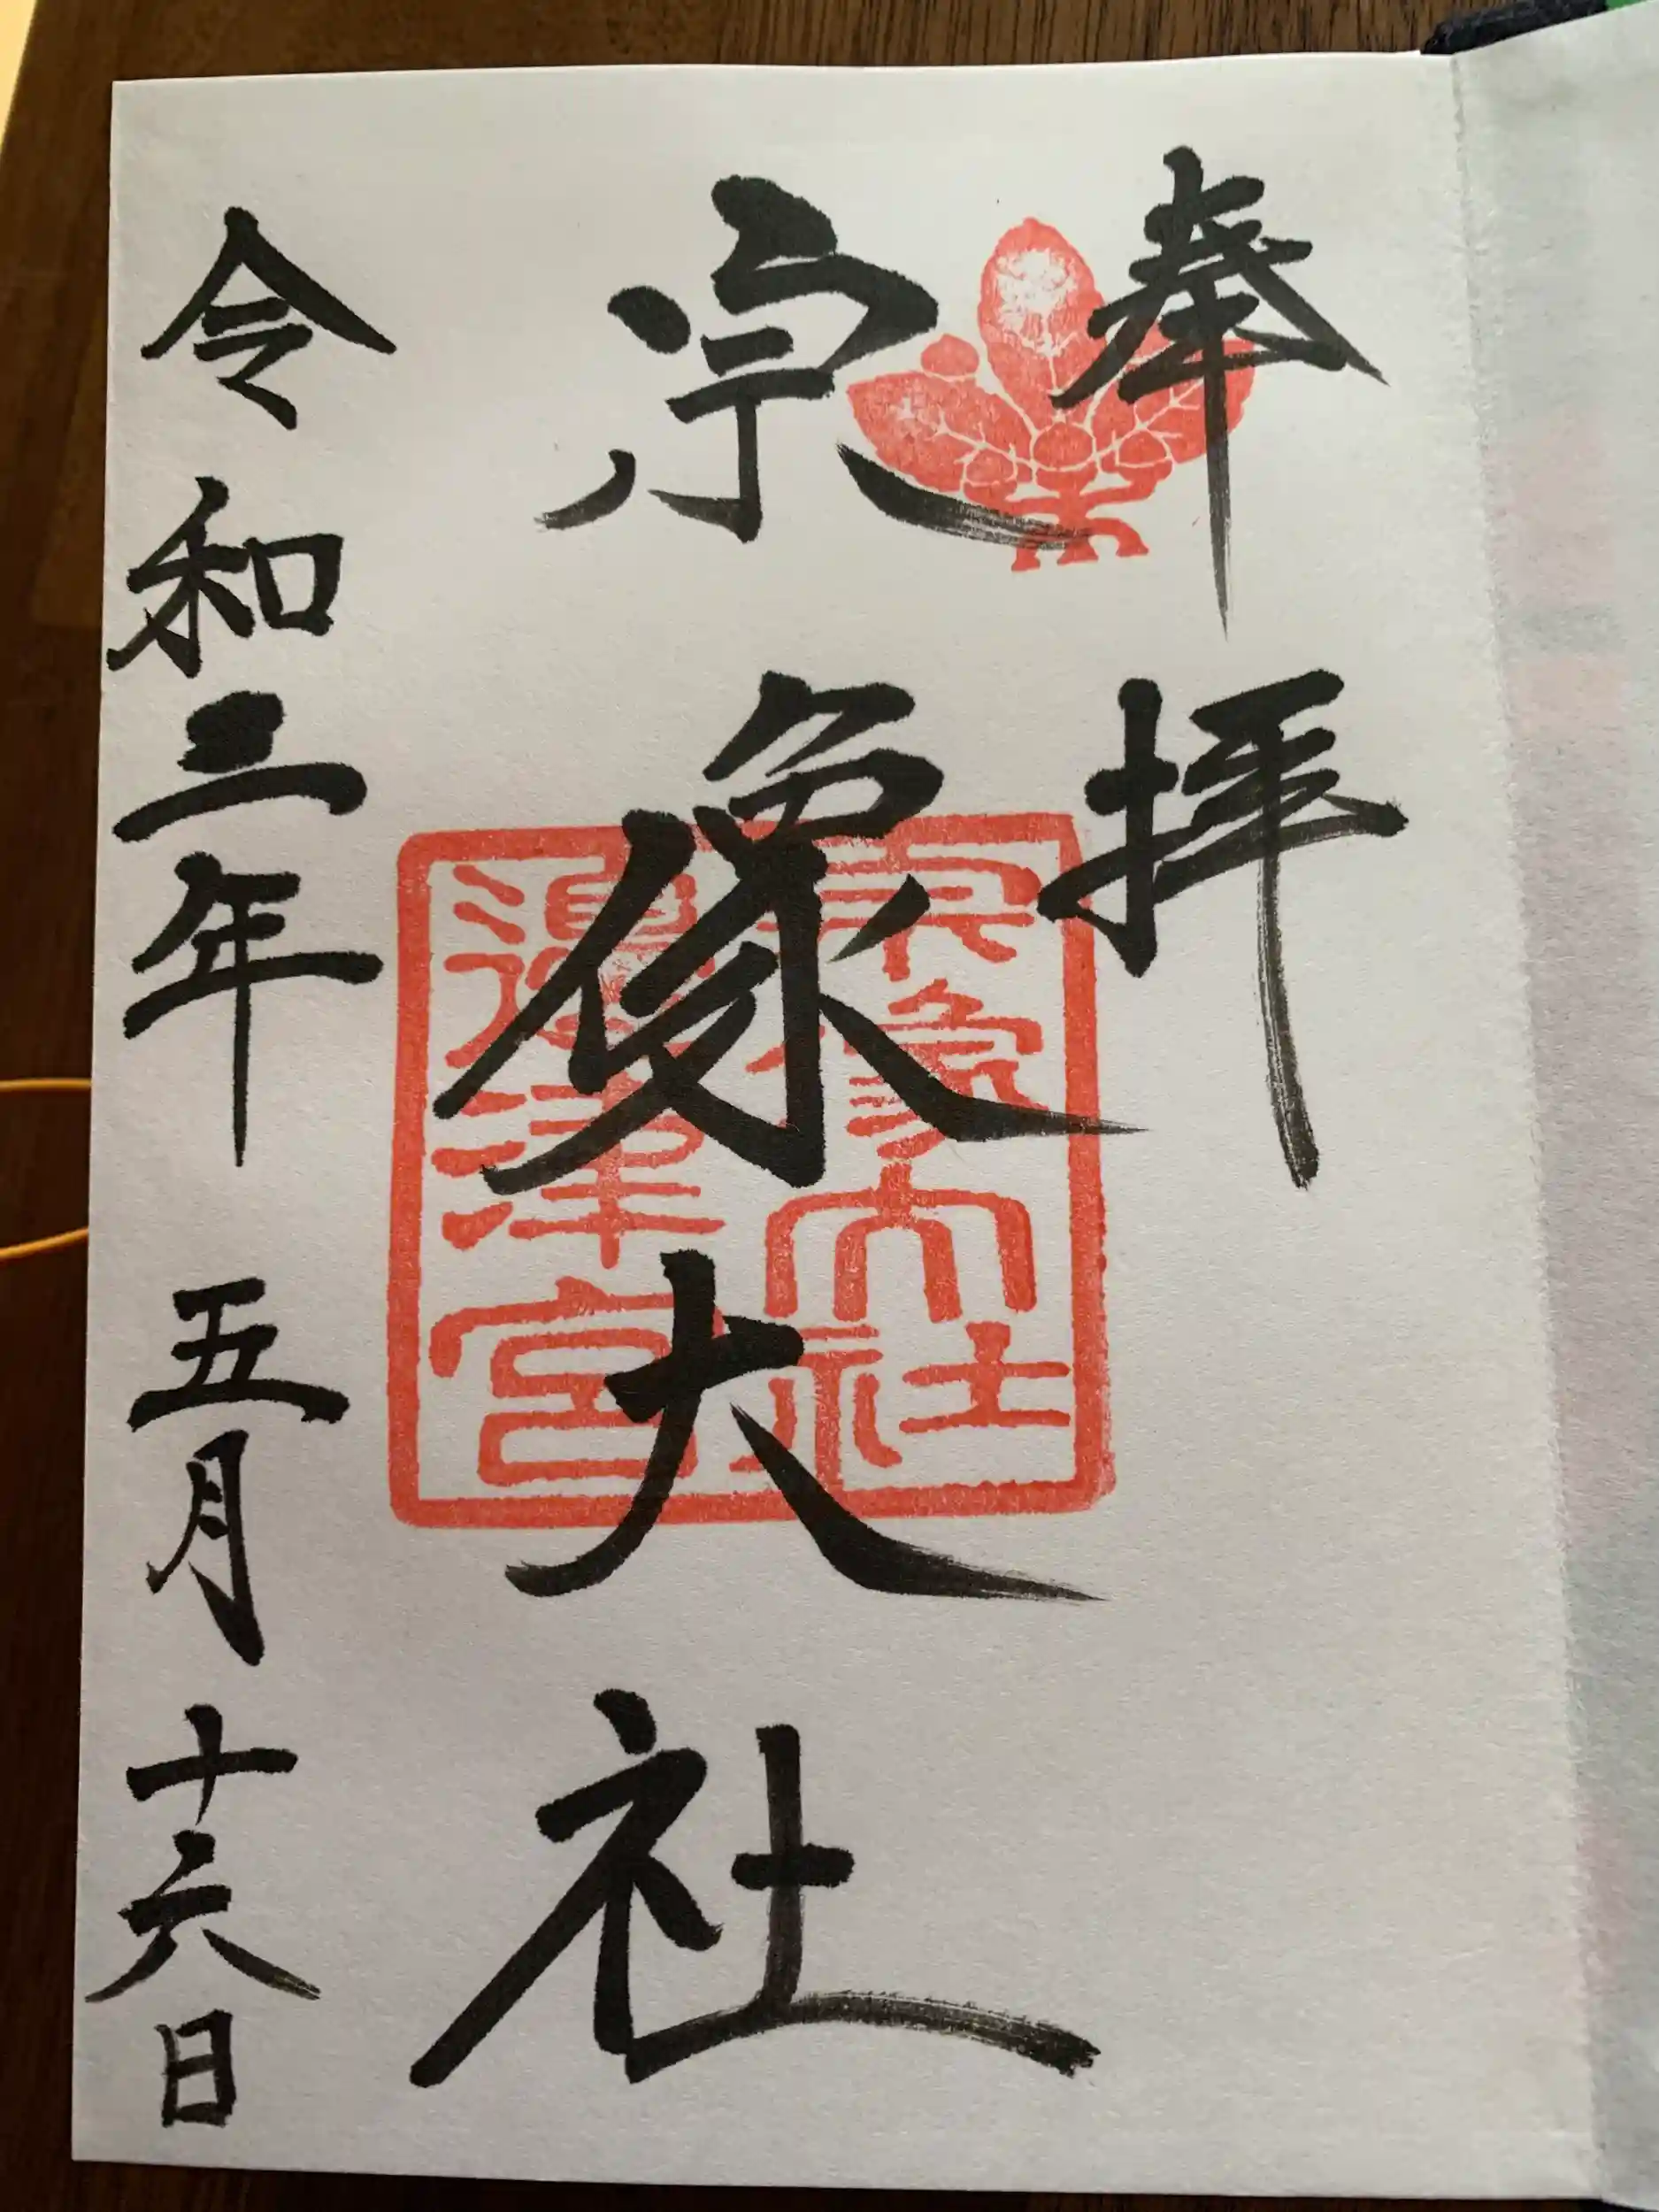 奉拝
宗像大社
宗像大社
邊津宮
令和三年 五月 十六日